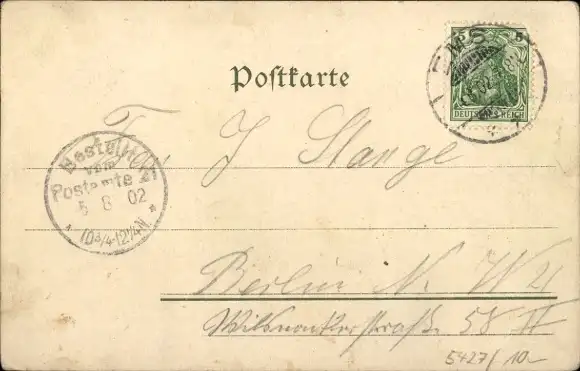 Postkarte
EMS
DEUTSCHES REICH
Bestellt
vom
Postamte
5 8 02
10¾-12¼N.
J Stange
Berlin N. W 21
Wilsnackerstraße 58 II
5427/10-